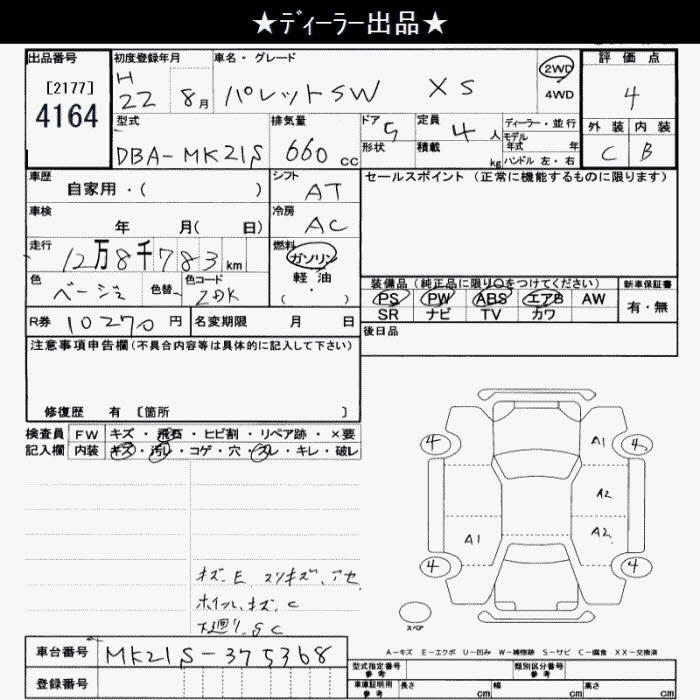 ★ディーラー出品★
出品番号 初度登録年月 車名・グレード 評価点
[2177] H 22 8月 パレットSW XS 2WD 4
4164 4WD
型式 排気量 ドア 5 定員 4人 ディーラー・並行 外装 内装
DBA-MK21S 660cc 形状 積載 kg モデル年式 年 C B
ハンドル 左・右
車歴 自家用・( ) シフト AT セールスポイント (正常に機能するものに限ります)
車検 年 月( 日) 冷房 AC
走行 12万8千783km 燃料 ガソリン
軽油
( ・ )
色 ベージュ 色替 色コード ZDK 装備品(純正品に限り○をつけてください) 新車保証書
PS PW ABS エアB AW 有・無
SR ナビ TV カワ
R券 10270円 名変期限 月 日 後日品
注意事項申告欄(不具合内容等は具体的に記入して下さい)
修復歴 有 [箇所 ]
検査員 FW キズ・飛石・ヒビ割・リペア跡・×要
記入欄 内装 キズ・汚レ・コゲ・穴・スレ・キレ・破レ
4 A1 4
A2
A1 A2
4 4
キズ、E スリキズ、アセ
ホイル、キズ、C
下廻り、SC
スペア
A-キズ E-エクボ U-凹み W-補修跡 S-サビ C-腐食 XX-交換済
車台番号 MK21S-375368 型式指定番号 参考 類別区分番号 参考
登録番号 車庫証明用 参考 長さ cm 幅 cm 高さ cm